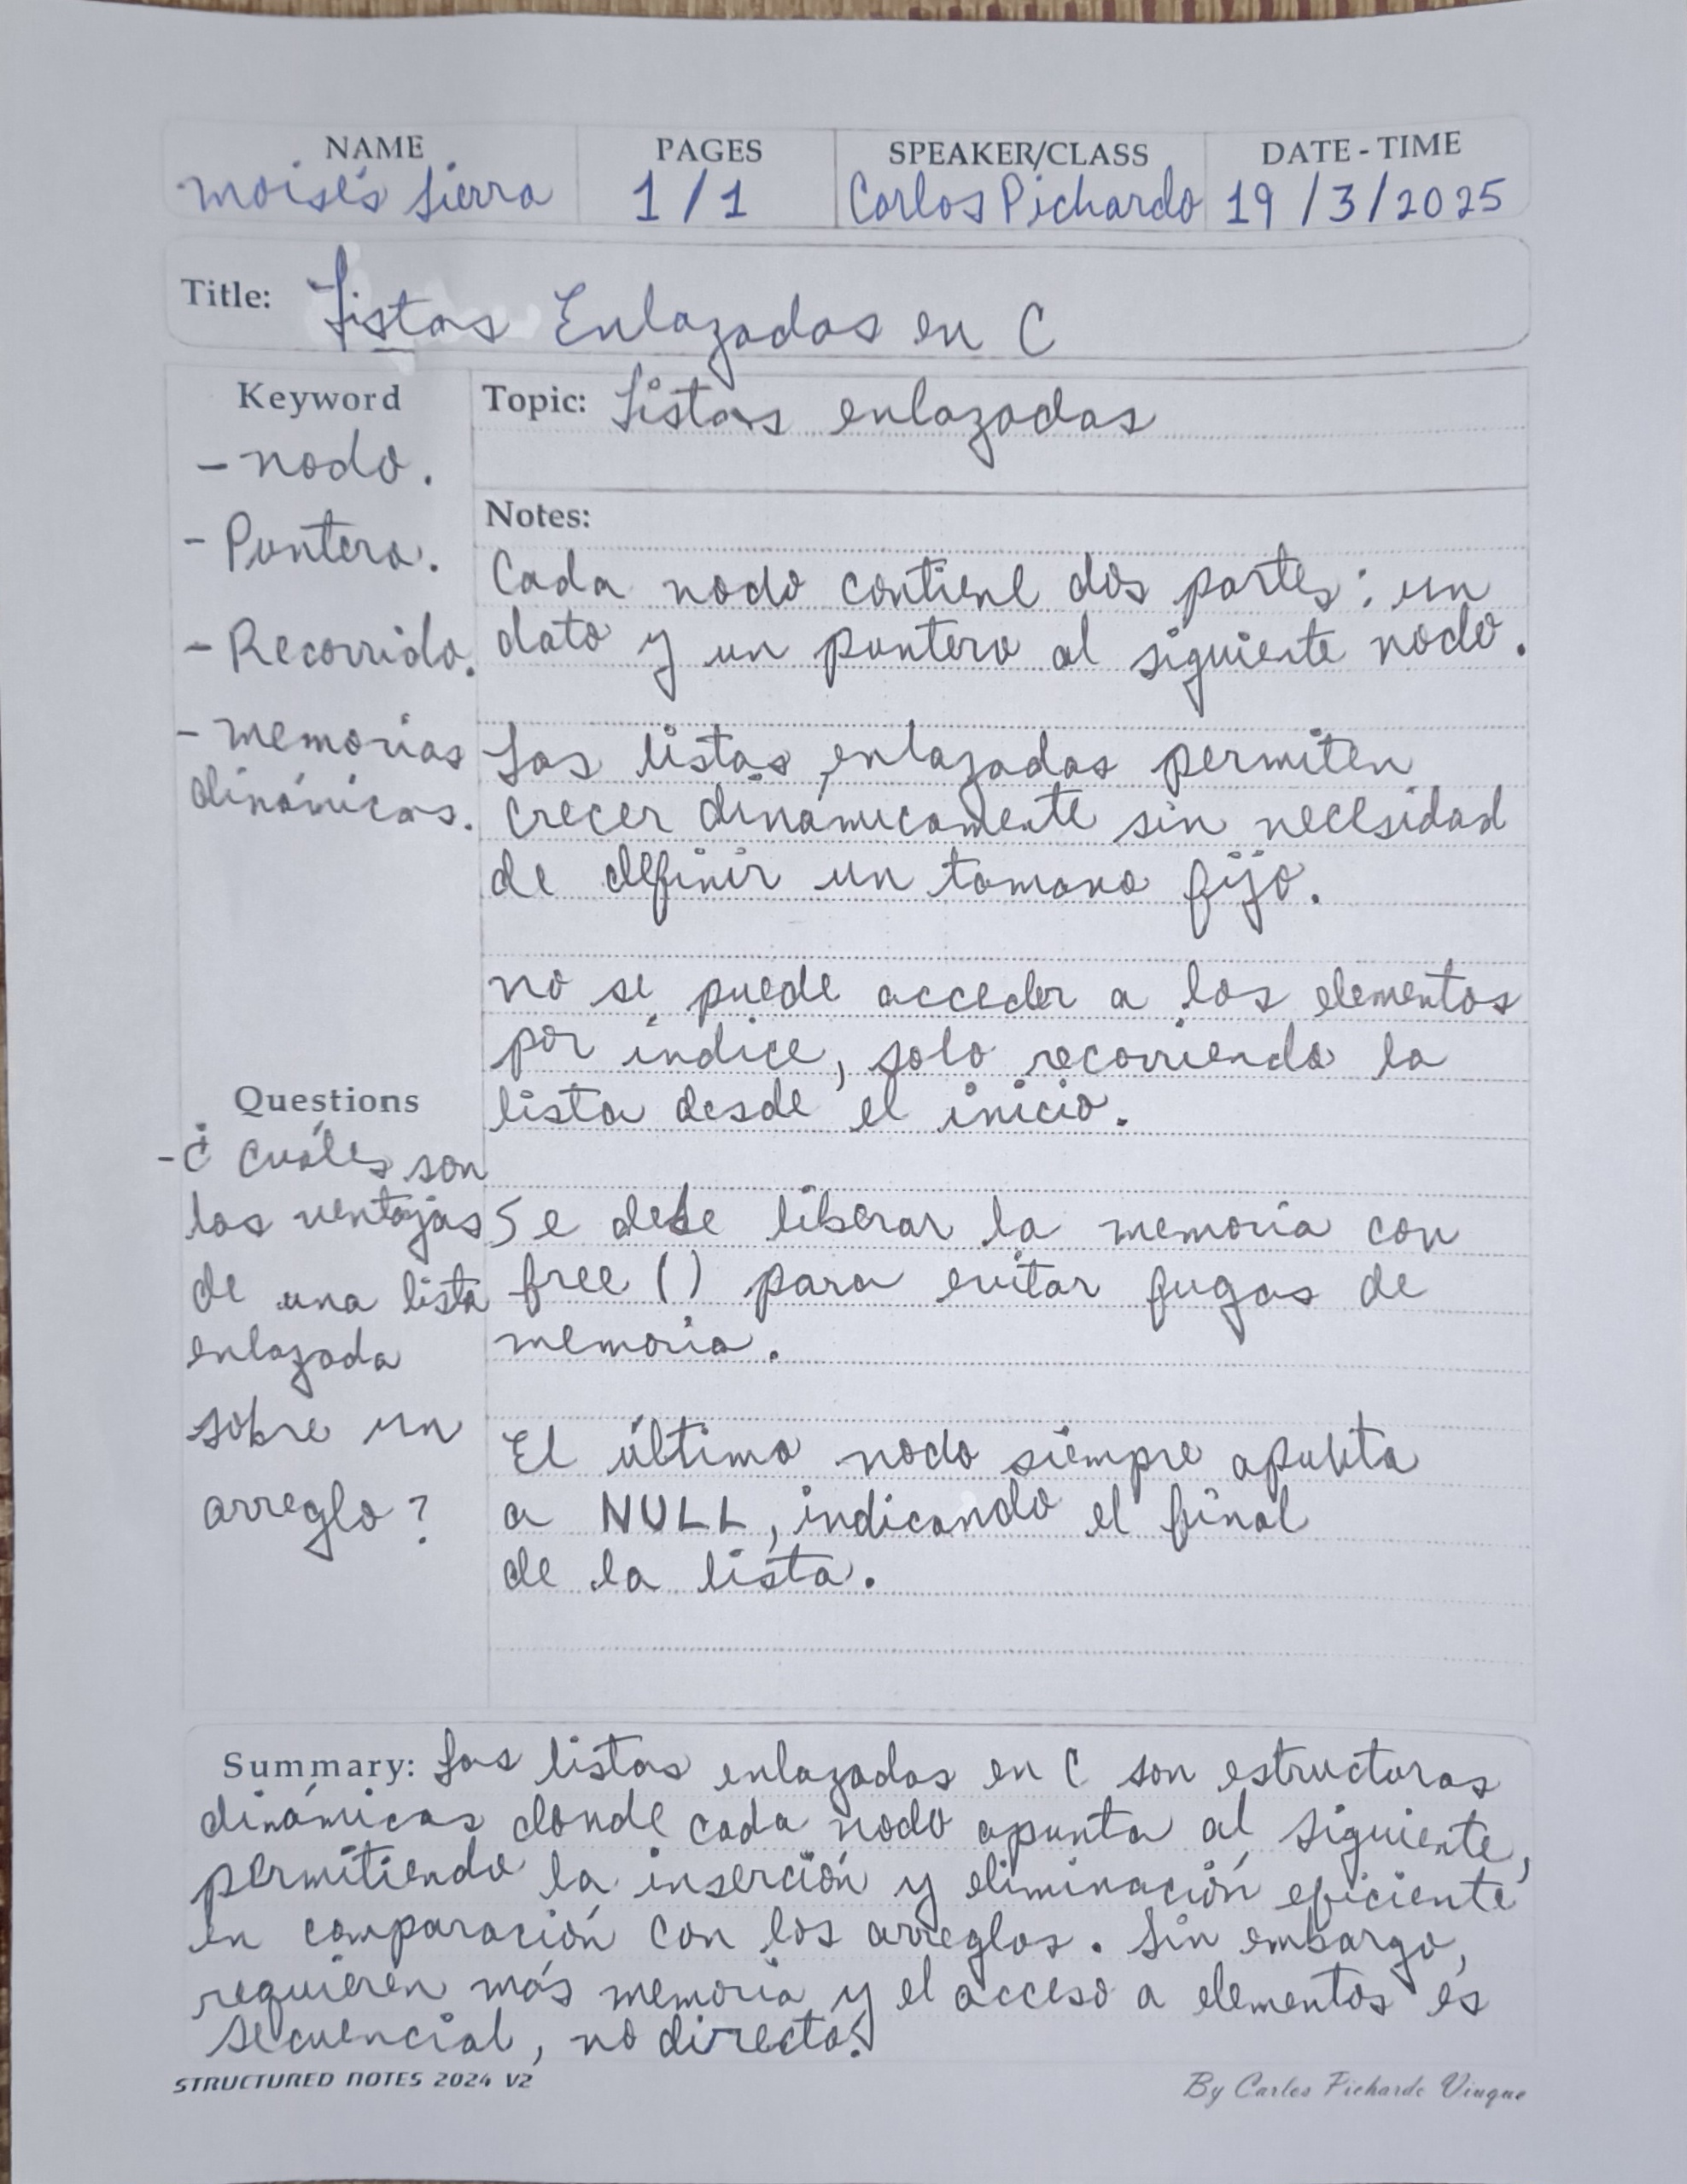 NAME PAGES SPEAKER/CLASS DATE - TIME
Moisés Sierra 1/1 Carlos Pichardo 19/3/2025
Title: Listas Enlazadas en C
Keyword
- nodo.
- Puntero.
- Recorrido.
- memorias
dinámicas.
Questions
- ¿ Cuáles son
las ventajas
de una lista
enlazada
sobre un
arreglo?
Topic: Listas enlazadas
Notes:
Cada nodo contiene dos partes: un
dato y un puntero al siguiente nodo.
Las listas enlazadas permiten
crecer dinámicamente sin necesidad
de definir un tamano fijo.
no se puede acceder a los elementos
por índice, solo recorriendo la
lista desde el inicio.
Se debe liberar la memoria con
free () para evitar fugas de
memoria.
El último nodo siempre apunta
a NULL, indicando el final
de la lista.
Summary: Las listas enlazadas en C son estructuras
dinámicas donde cada nodo apunta al siguiente,
permitiendo la inserción y eliminación eficiente
en comparación con los arreglos. Sin embargo,
requieren más memoria y el acceso a elementos es
secuencial, no directo.
STRUCTURED NOTES 2024 V2
By Carlos Pichardo Viuque